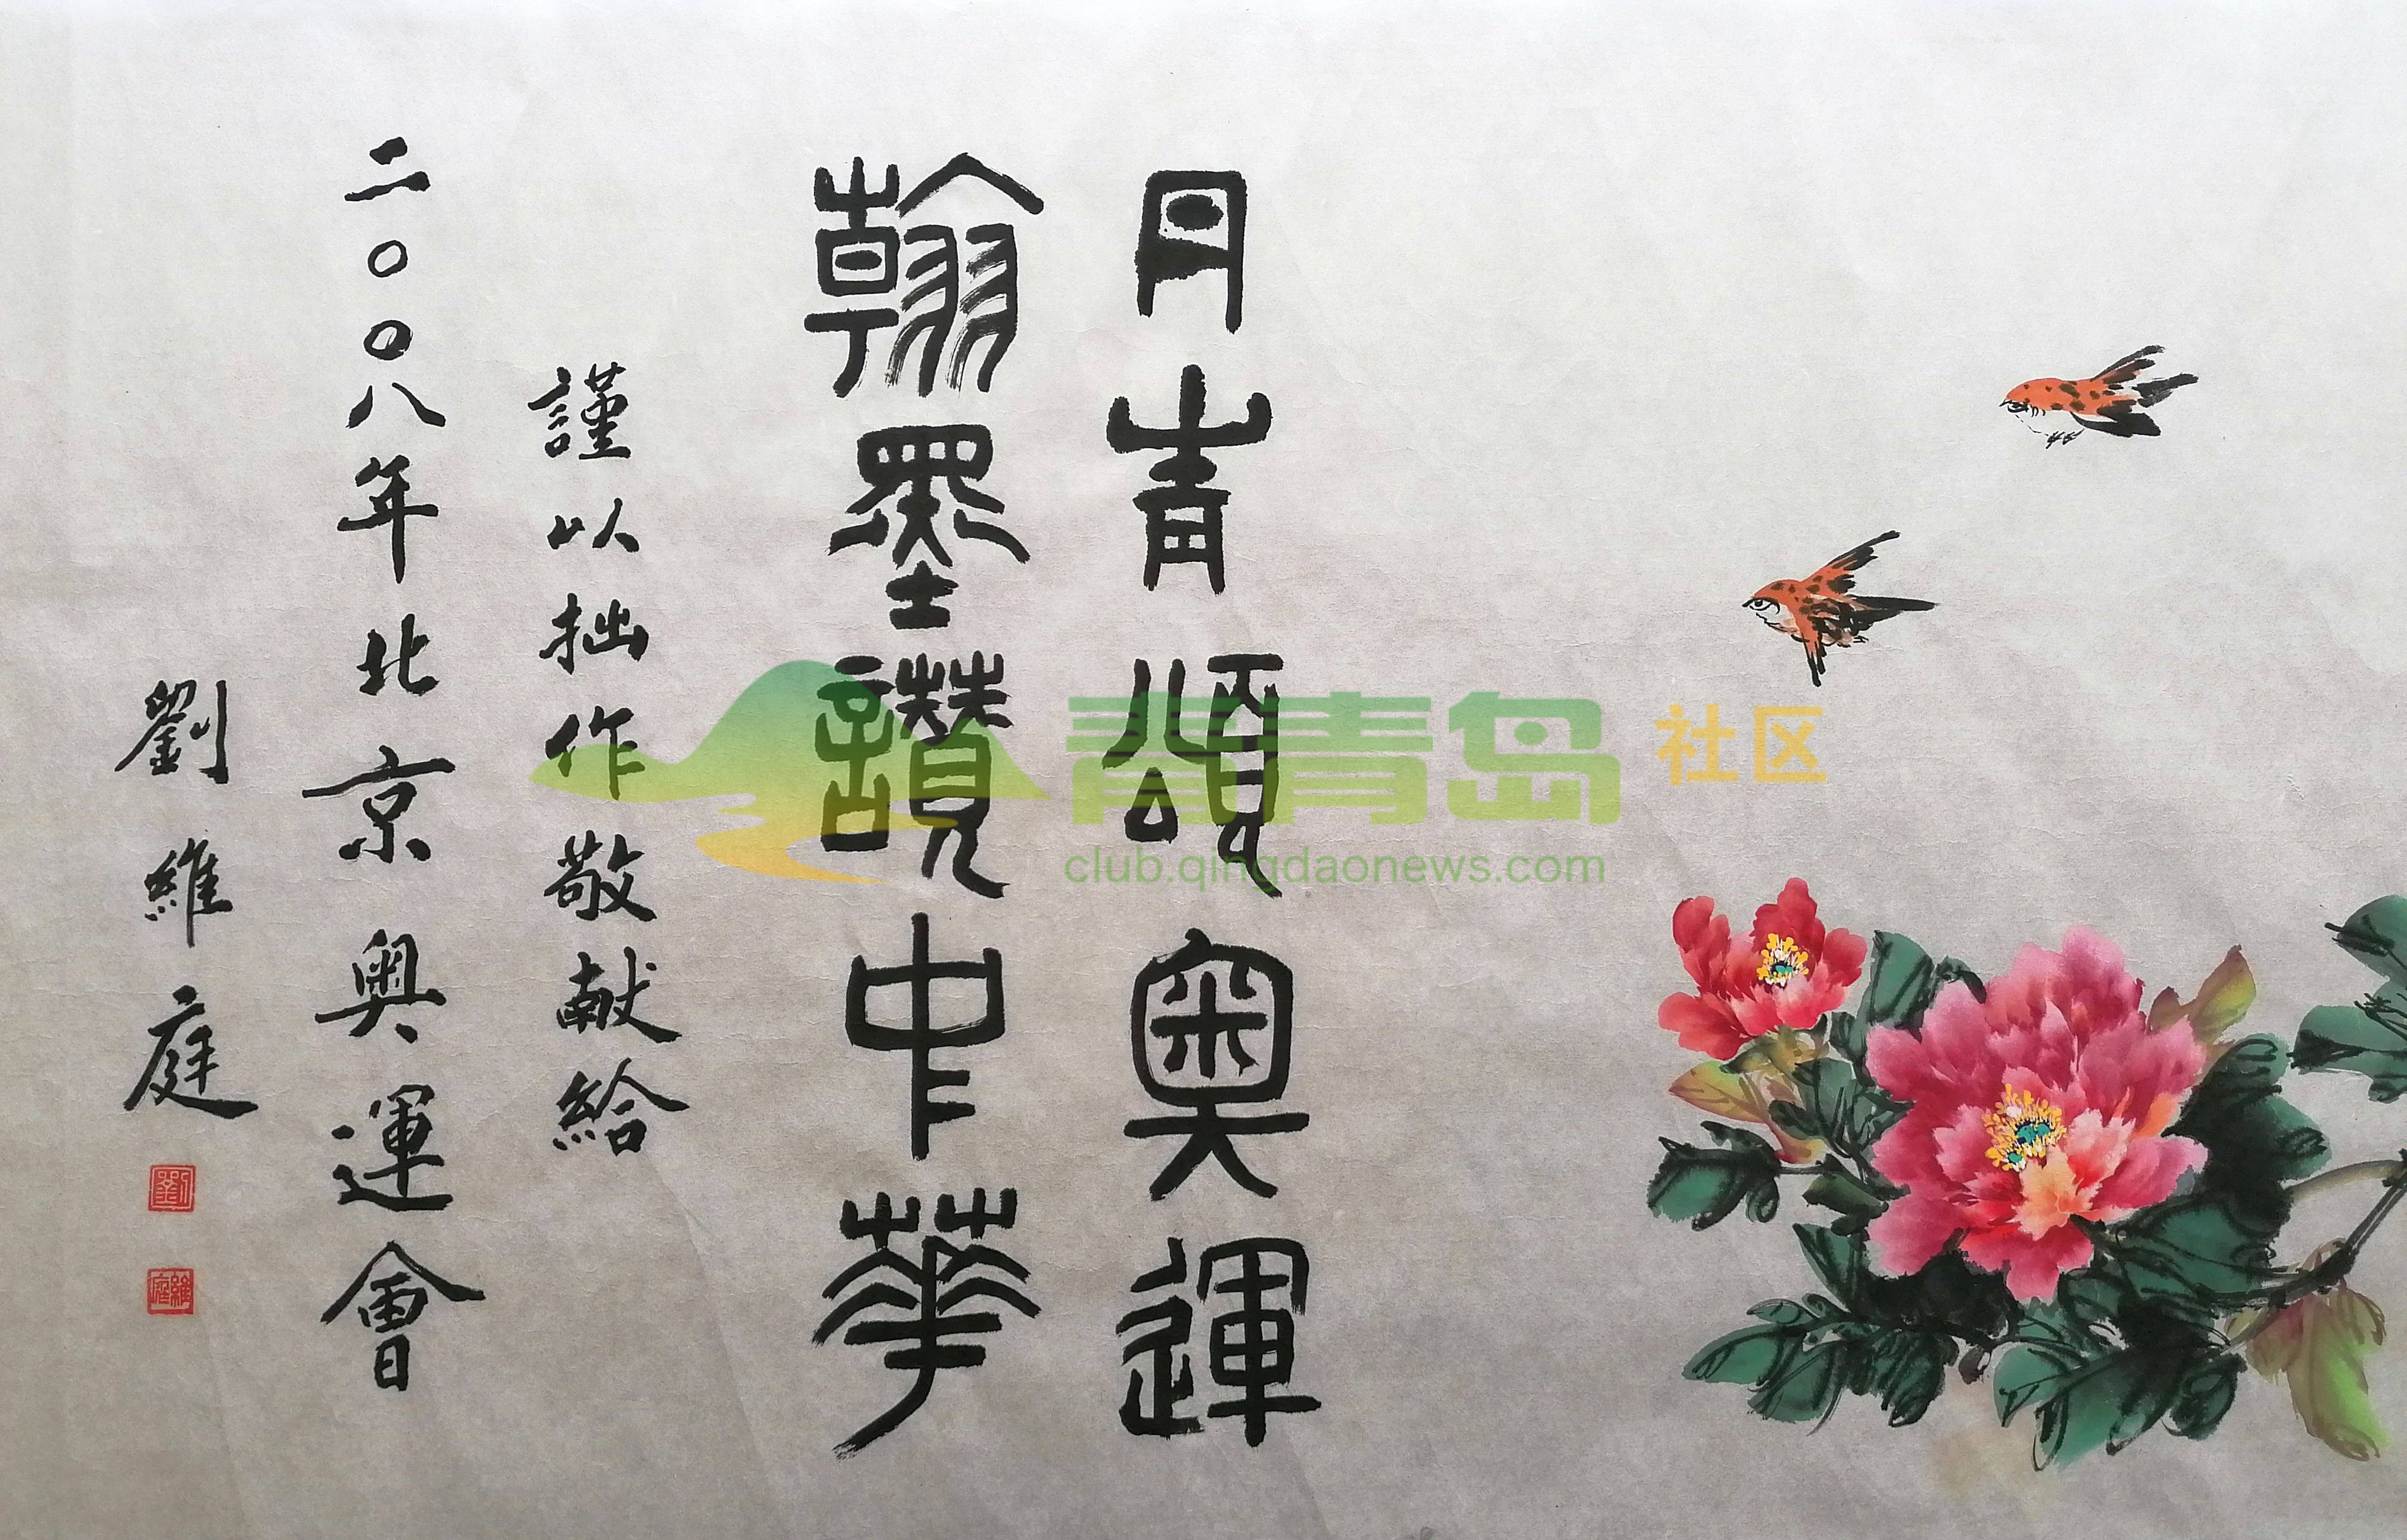 丹青頌奧運
翰墨讚中華
謹以拙作敬献給
二〇〇八年北京奥運會
劉維庭
劉
維庭
青青岛 社区
club.qingdaonews.com